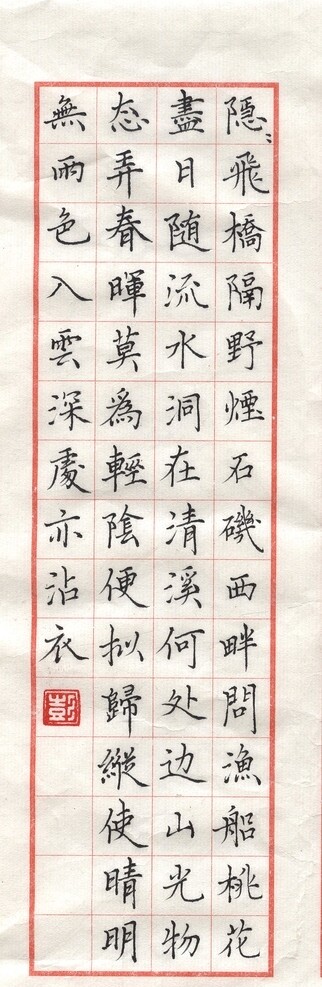 隱〻飛橋隔野煙石磯西畔問漁船桃花
盡日随流水洞在清溪何处边山光物
态弄春暉莫爲輕陰便拟歸縱使晴明
無雨色入雲深處亦沾衣
彭